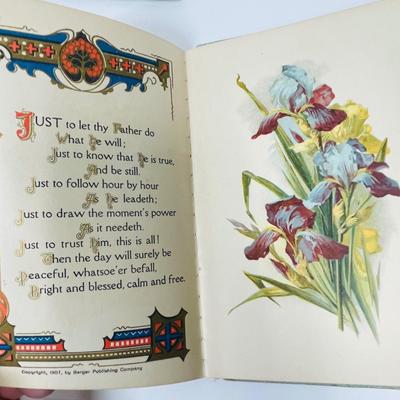 JUST to let thy Father do
What He will;
Just to know that He is true,
And be still.
Just to follow hour by hour
As He leadeth;
Just to draw the moment's power
As it needeth.
Just to trust Him, this is all!
Then the day will surely be
Peaceful, whatsoe'er befall,
Bright and blessed, calm and free.
Copyright, 1907, by Barger Publishing Company